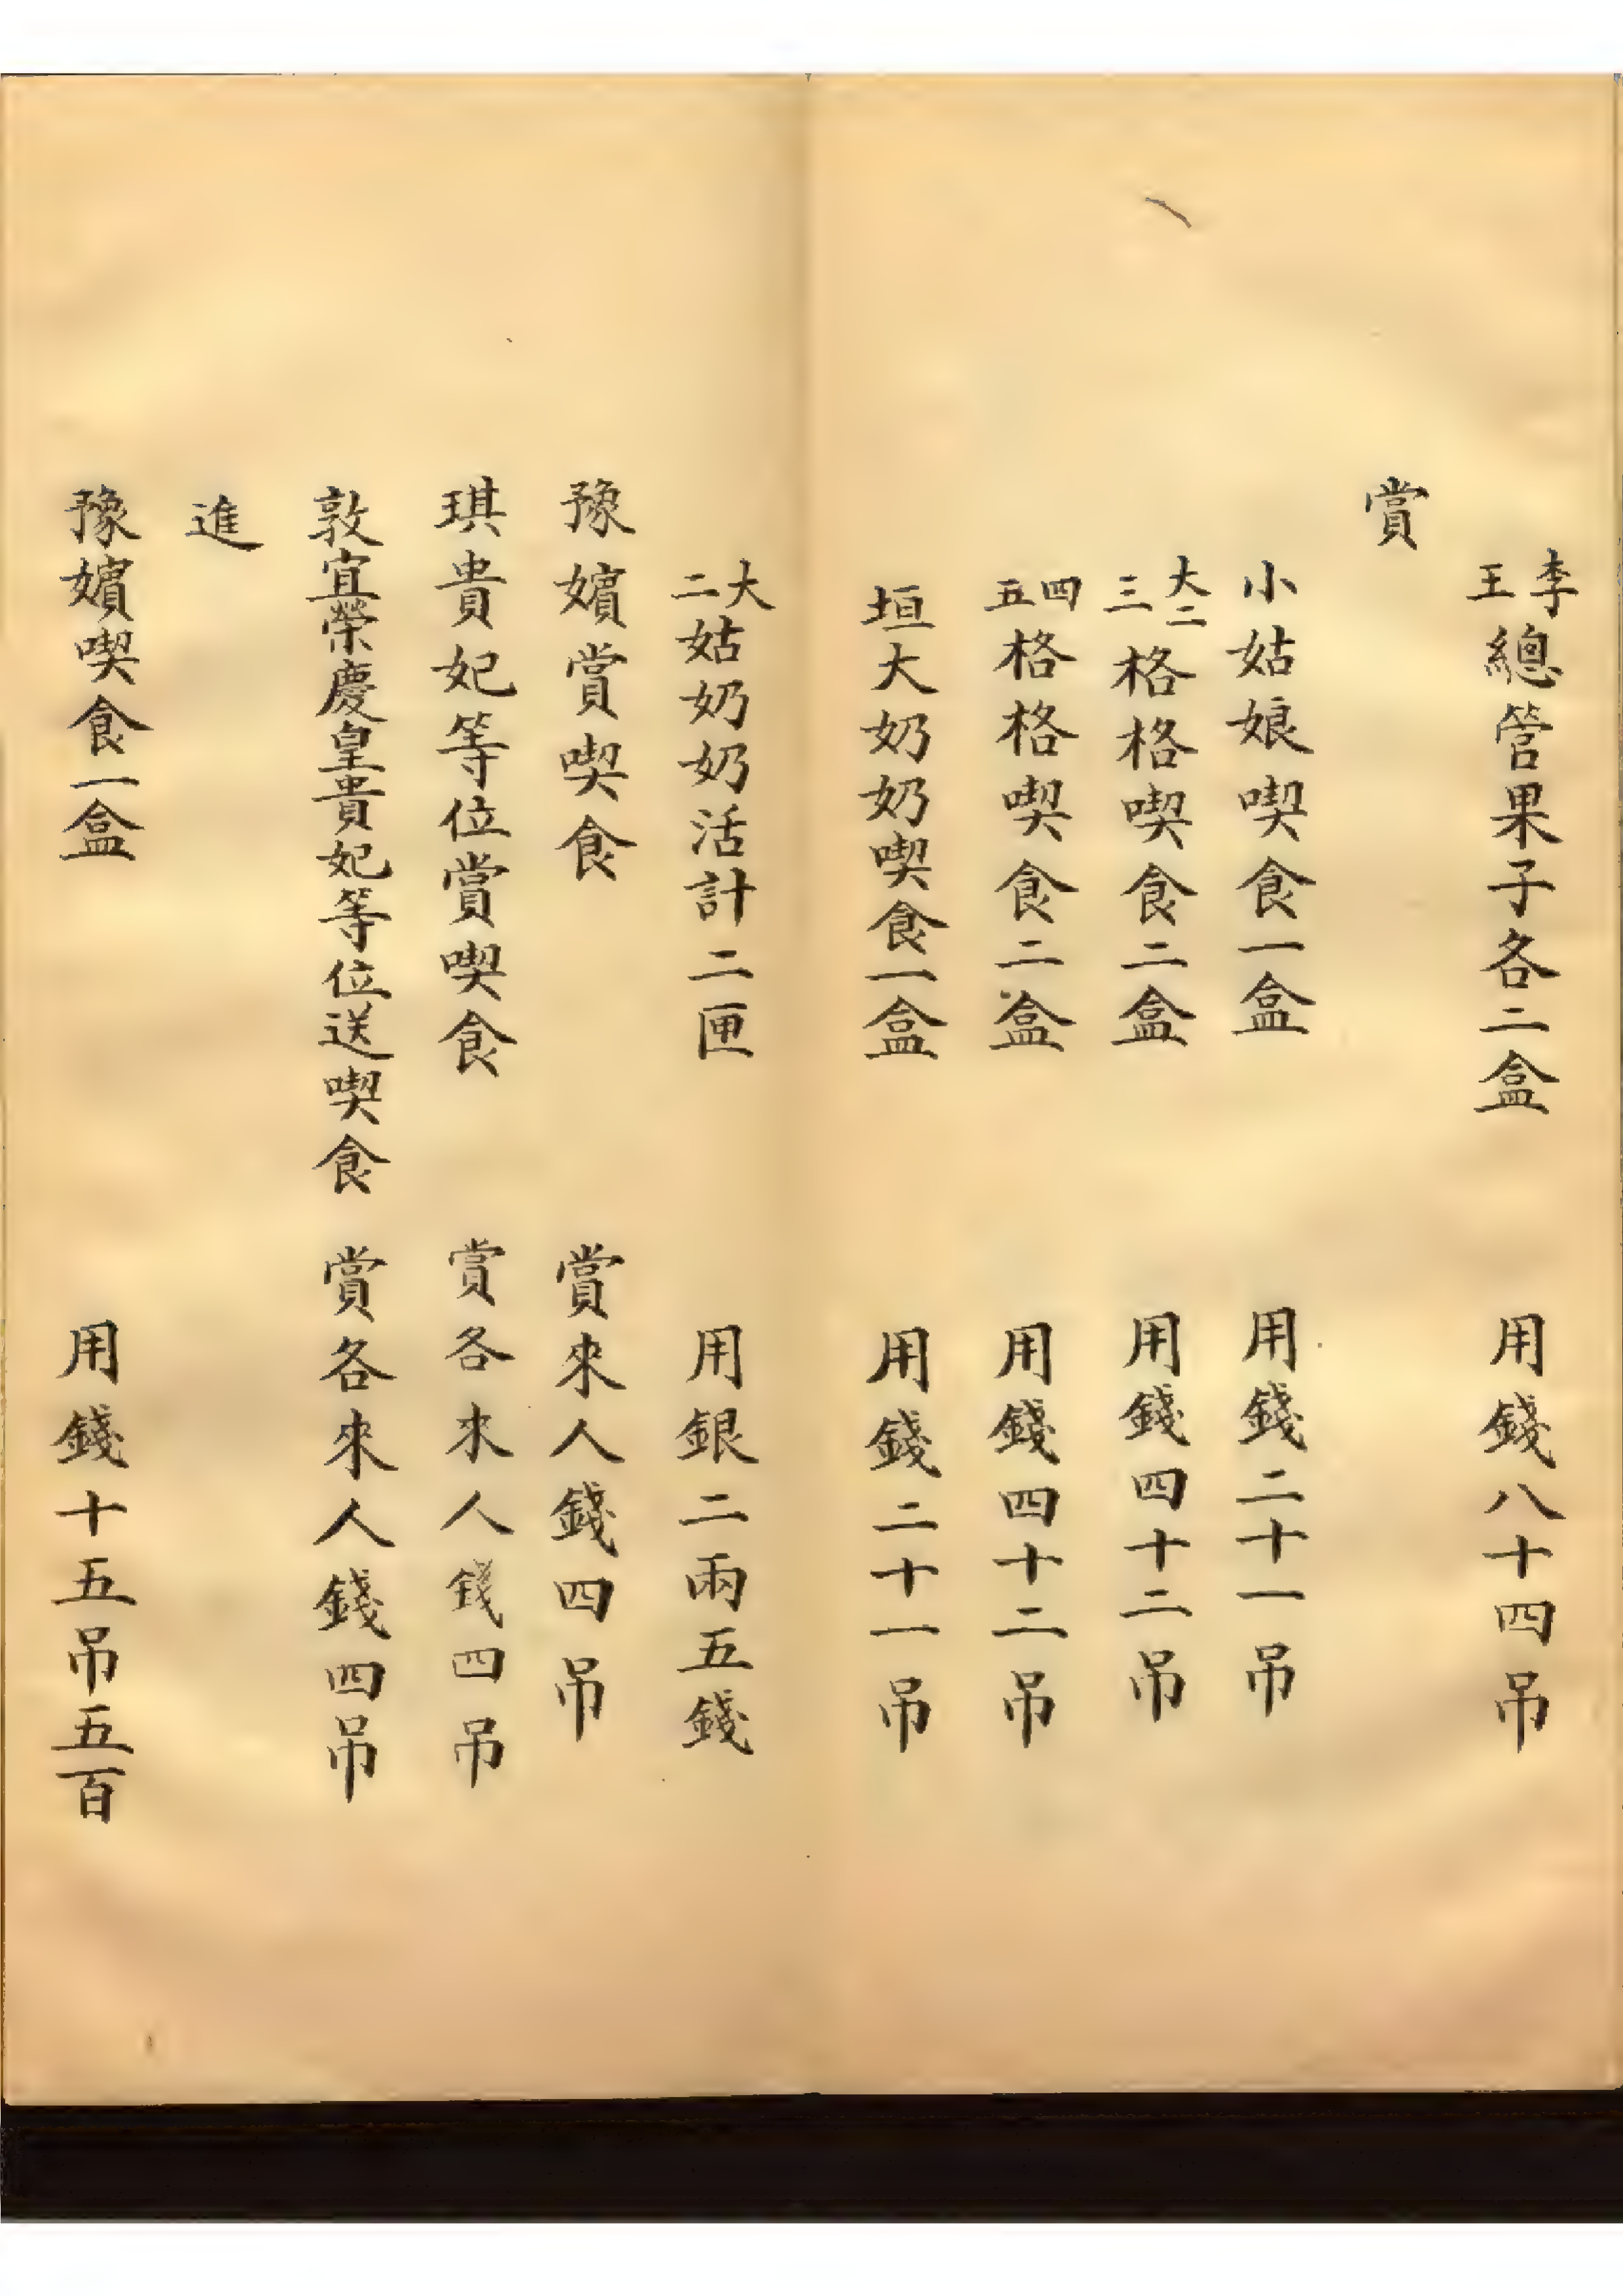 李王總管果子各二盒 用錢八十四吊
賞
小姑娘喫食一盒 用錢二十一吊
大二三格格喫食二盒 用錢四十二吊
四五格格喫食二盒 用錢四十二吊
垣大奶奶喫食一盒 用錢二十一吊
大二姑奶奶活計二匣 用銀二兩五錢
豫嬪賞喫食 賞來人錢四吊
琪貴妃等位賞喫食 賞各來人錢四吊
敦宜榮慶皇貴妃等位送喫食 賞各來人錢四吊
進
豫嬪喫食一盒 用錢十五吊五百